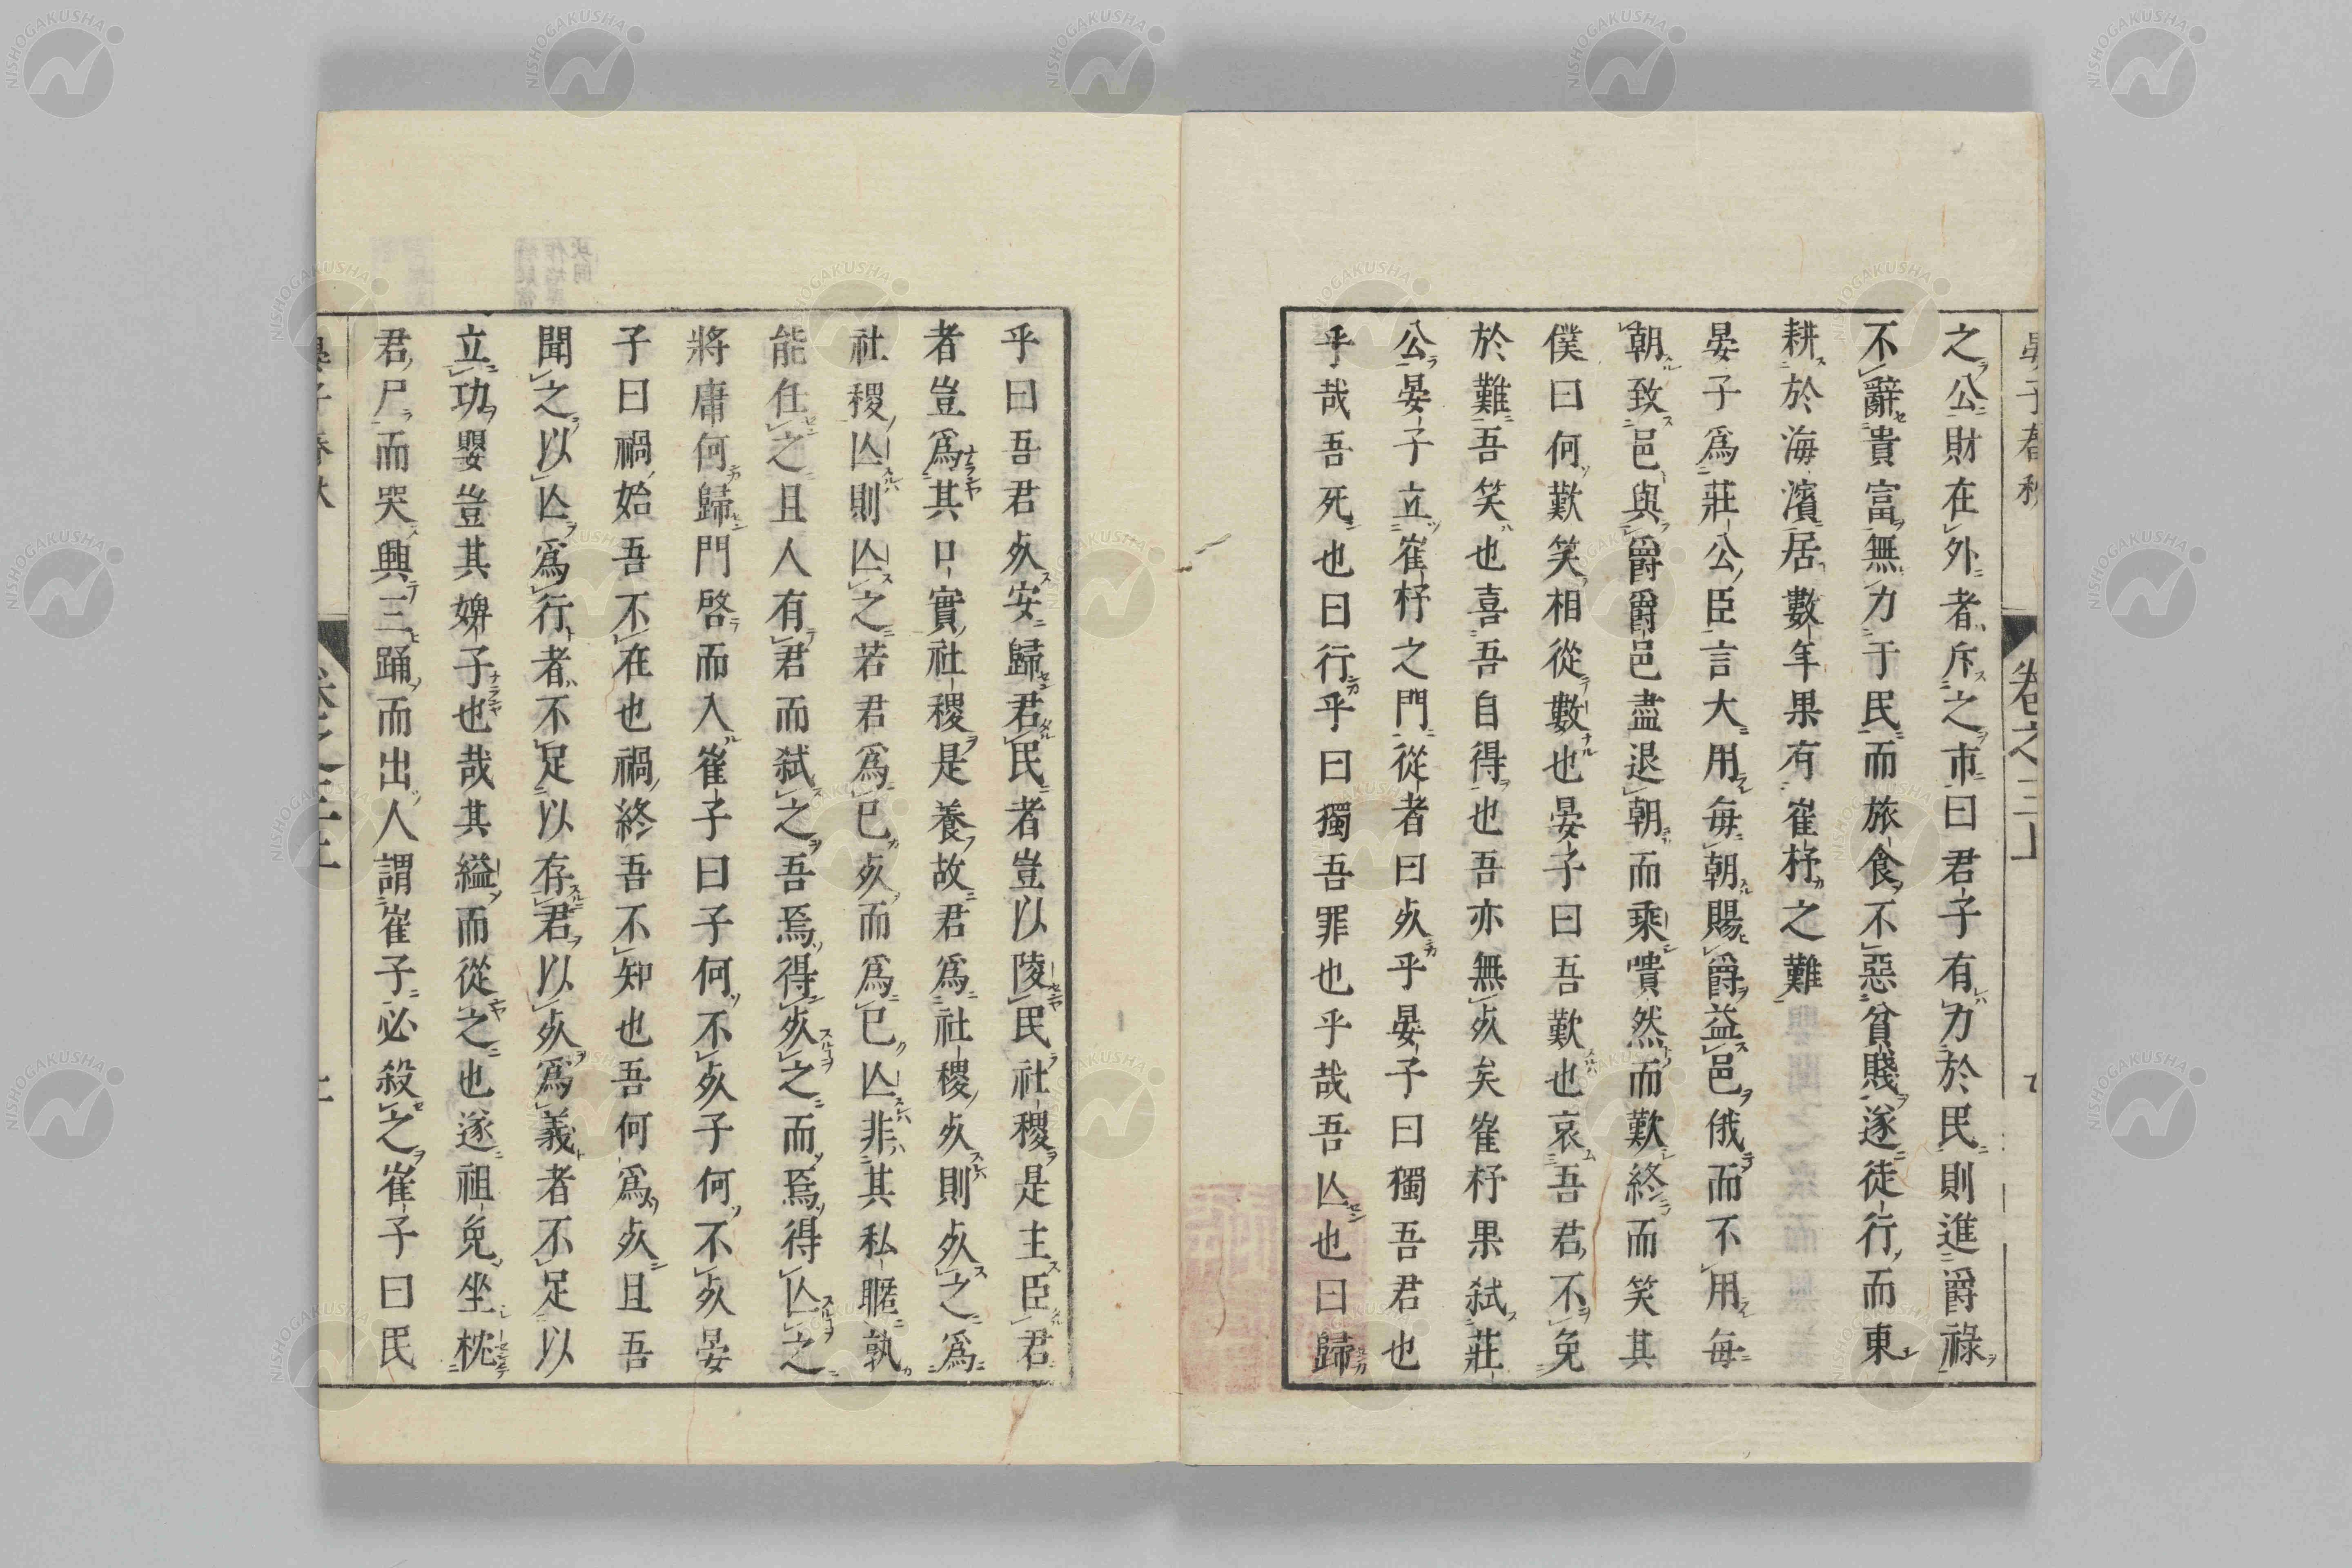 之公財在外者斥之市曰君子有力於民則進爵祿
不辭貴富無力于民而旅食不惡貧賤遂徒行而東
耕於海濱居數年果有崔杼之難
晏子爲莊公臣言大用每朝賜爵益邑俄而不用每
朝致邑與爵爵邑盡退朝而乘嘳然而歎終而笑其
僕曰何歎笑相從數也晏子曰吾歎也哀吾君不免
於難吾笑也喜吾自得也吾亦無㱙矣崔杼果弑莊
公晏子立崔杼之門從者曰㱙乎晏子曰獨吾君也
乎哉吾死也曰行乎曰獨吾罪也乎哉吾亾也曰歸
乎曰吾君㱙安歸君民者豈以陵民社稷是主臣君
者豈爲其口實社稷是養故君爲社稷㱙則㱙之爲
社稷亾則亾之若君爲已㱙而爲已亾非其私暱孰
能任之且人有君而弑之吾焉得㱙之而焉得亾之
將庸何歸門啓而入崔子曰子何不㱙子何不㱙晏
子曰禍始吾不在也禍終吾不知也吾何爲㱙且吾
聞之以亾爲行者不足以存君以㱙爲義者不足以
立功嬰豈其婢子也哉其縊而從之也遂袒免坐枕
君尸而哭興三踊而出人謂崔子必殺之崔子曰民